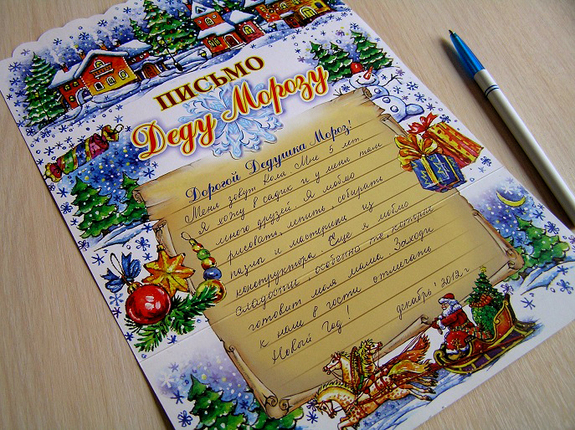 ПИСЬМО
Деду Морозу
Дорогой Дедушка Мороз!
Меня зовут Коля Мне 5 лет
Я хожу в садик и у меня там
много друзей Я люблю
рисовать, лепить, собирать
пазлы и мастерить из
конструктора Еще я люблю
сладости особенно те, которые
готовит моя мама. Заходи
к нам в гости отмечать
Новый Год! декабрь! 2012 г